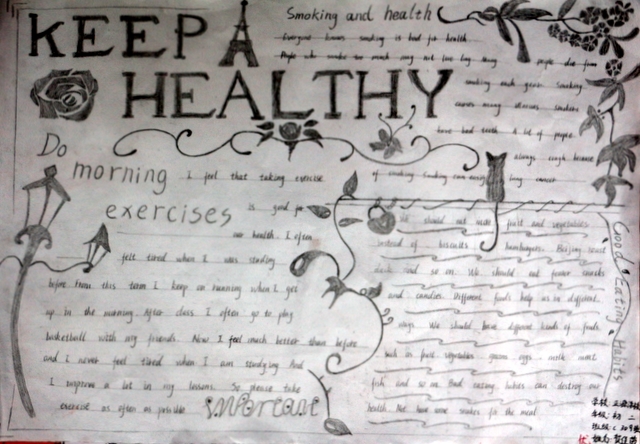 KEEP A
HEALTHY
Smoking and health
Everyone knows smoking is bad for health.
People who smoke too much may not live long
people die from
smoking each year. Smoking
causes many illnesses. smokers
have bad teeth. A lot of people
always cough because
of smoking. Smoking can
lung cancer
Do
morning
exercises
I feel that taking exercise
is good for
our health. I often
felt tired when I was studing
before. From this term I keep on running when I get
up in the morning. After class I often go to play
basketball with my friends. Now I feel much better than before
and I never feel tired when I am studying. And
I improve a lot in my lessons. So please take
exercise as often as possible
important
Good Eating Habits
We should eat more fruit and vegetables
instead of biscuits hamburgers. Beijing roast
duck and so on. We should eat fewer snacks
and candies. Different foods help us in different
ways. We should have different kinds of foods
such as fruit vegetables grains eggs milk meat
fish and so on. Bad eating habits can destroy our
health. Not have some snakes for the meal